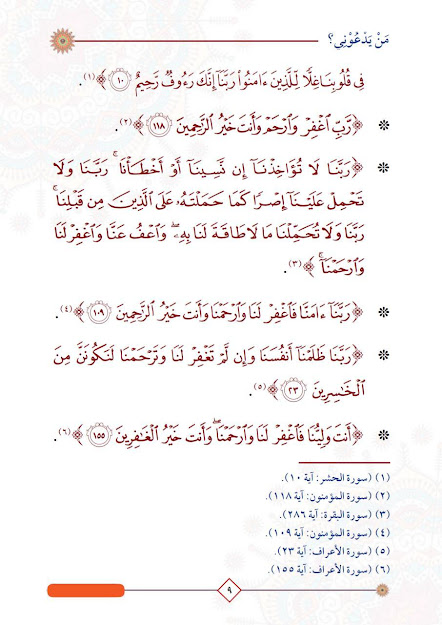 مَنْ يَدْعُونِي؟
فِي قُلُوبِنَا غِلًّا لِّلَّذِينَ ءَامَنُواْ رَبَّنَآ إِنَّكَ رَءُوفٞ رَّحِيمٌ ١٠﴾(١).
* ﴿رَّبِّ ٱغْفِرْ وَٱرْحَمْ وَأَنتَ خَيْرُ ٱلرَّٰحِمِينَ ١١٨﴾(٢).
* ﴿رَبَّنَا لَا تُؤَاخِذْنَآ إِن نَّسِينَآ أَوْ أَخْطَأْنَاۚ رَبَّنَا وَلَا
تَحْمِلْ عَلَيْنَآ إِصْرٗا كَمَا حَمَلْتَهُۥ عَلَى ٱلَّذِينَ مِن قَبْلِنَاۚ
رَبَّنَا وَلَا تُحَمِّلْنَا مَا لَا طَاقَةَ لَنَا بِهِۦۖ وَٱعْفُ عَنَّا وَٱغْفِرْ لَنَا
وَٱرْحَمْنَآۚ﴾(٣).
* ﴿رَبَّنَآ ءَامَنَّا فَٱغْفِرْ لَنَا وَٱرْحَمْنَا وَأَنتَ خَيْرُ ٱلرَّٰحِمِينَ ١٠٩﴾(٤).
* ﴿رَبَّنَا ظَلَمْنَآ أَنفُسَنَا وَإِن لَّمْ تَغْفِرْ لَنَا وَتَرْحَمْنَا لَنَكُونَنَّ مِنَ
ٱلْخَٰسِرِينَ ٢٣﴾(٥).
* ﴿أَنتَ وَلِيُّنَا فَٱغْفِرْ لَنَا وَٱرْحَمْنَاۖ وَأَنتَ خَيْرُ ٱلْغَٰفِرِينَ ١٥٥﴾(٦).
(١) (سورة الحشر: آية ١٠).
(٢) (سورة المؤمنون: آية ١١٨).
(٣) (سورة البقرة: آية ٢٨٦).
(٤) (سورة المؤمنون: آية ١٠٩).
(٥) (سورة الأعراف: آية ٢٣).
(٦) (سورة الأعراف: آية ١٥٥).
٩